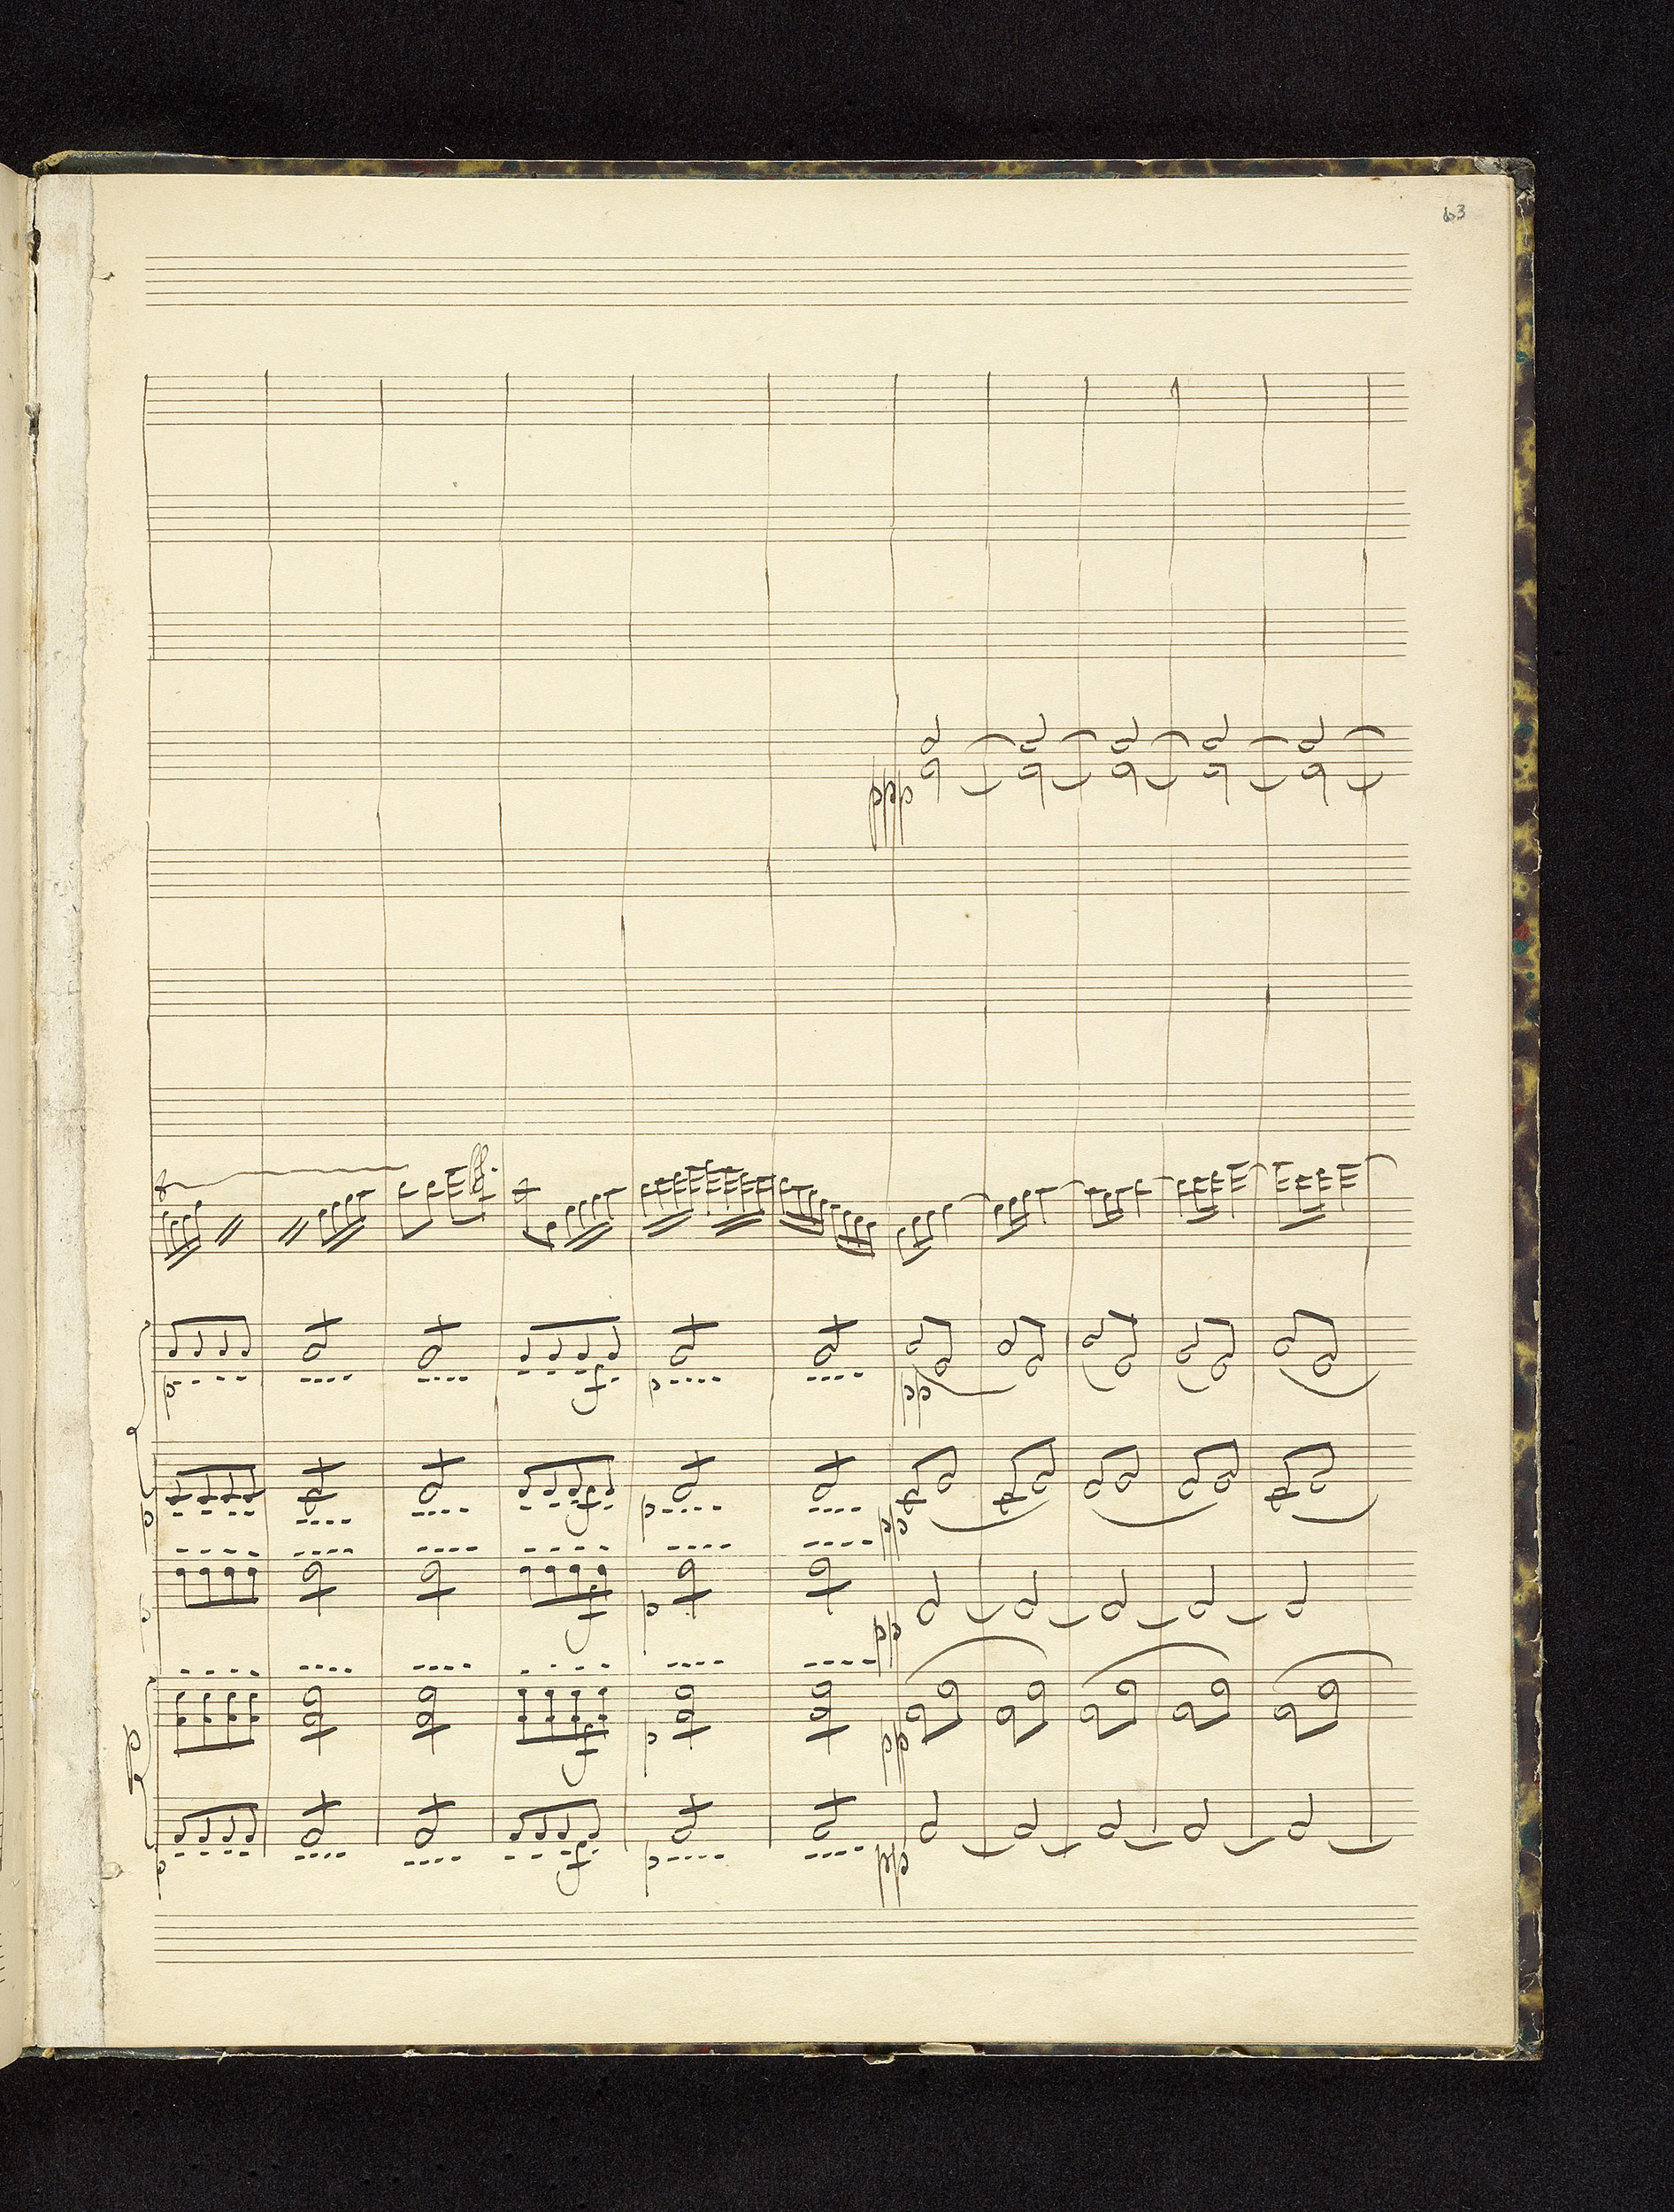 63
ppp
p
f
p
pp
p
f
p
pp
p
f
p
pp
p
f
p
pp
p
f
p
ppp